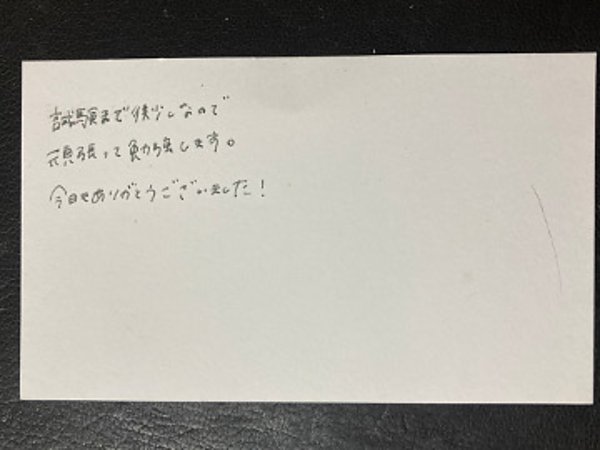 試験まで後少しなので
頑張って勉強します。
今日もありがとうございました！